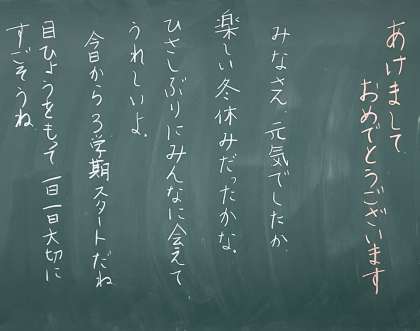 あけまして
おめでとうございます
みなさん、元気でしたか
楽しい冬休みだったかな。
ひさしぶりにみんなに会えて
うれしいよ。
今日から3学期スタートだね
目ひょうをもって一日一日大切に
すごそうね